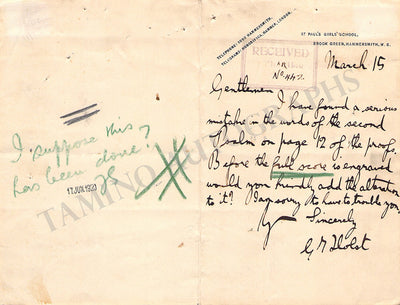 ST PAUL'S GIRLS' SCHOOL,
BROOK GREEN, HAMMERSMITH, W. 6.
TELEPHONE: HAMMERSMITH.
TELEGRAMS: HAMMERSMITH, LONDON.
RECEIVED
MAR
March 15
Gentlemen
I have found a serious
mistake in the words of the second
Psalm on page 12 of the proof.
Before the full score is engraved
would you friendly add the alteration
to it? I am sorry to have to trouble you
Yrs Sincerely
G v Holst
I suppose this
has been done?
17 JUN 1920
TAMINO AUTOGRAPHS